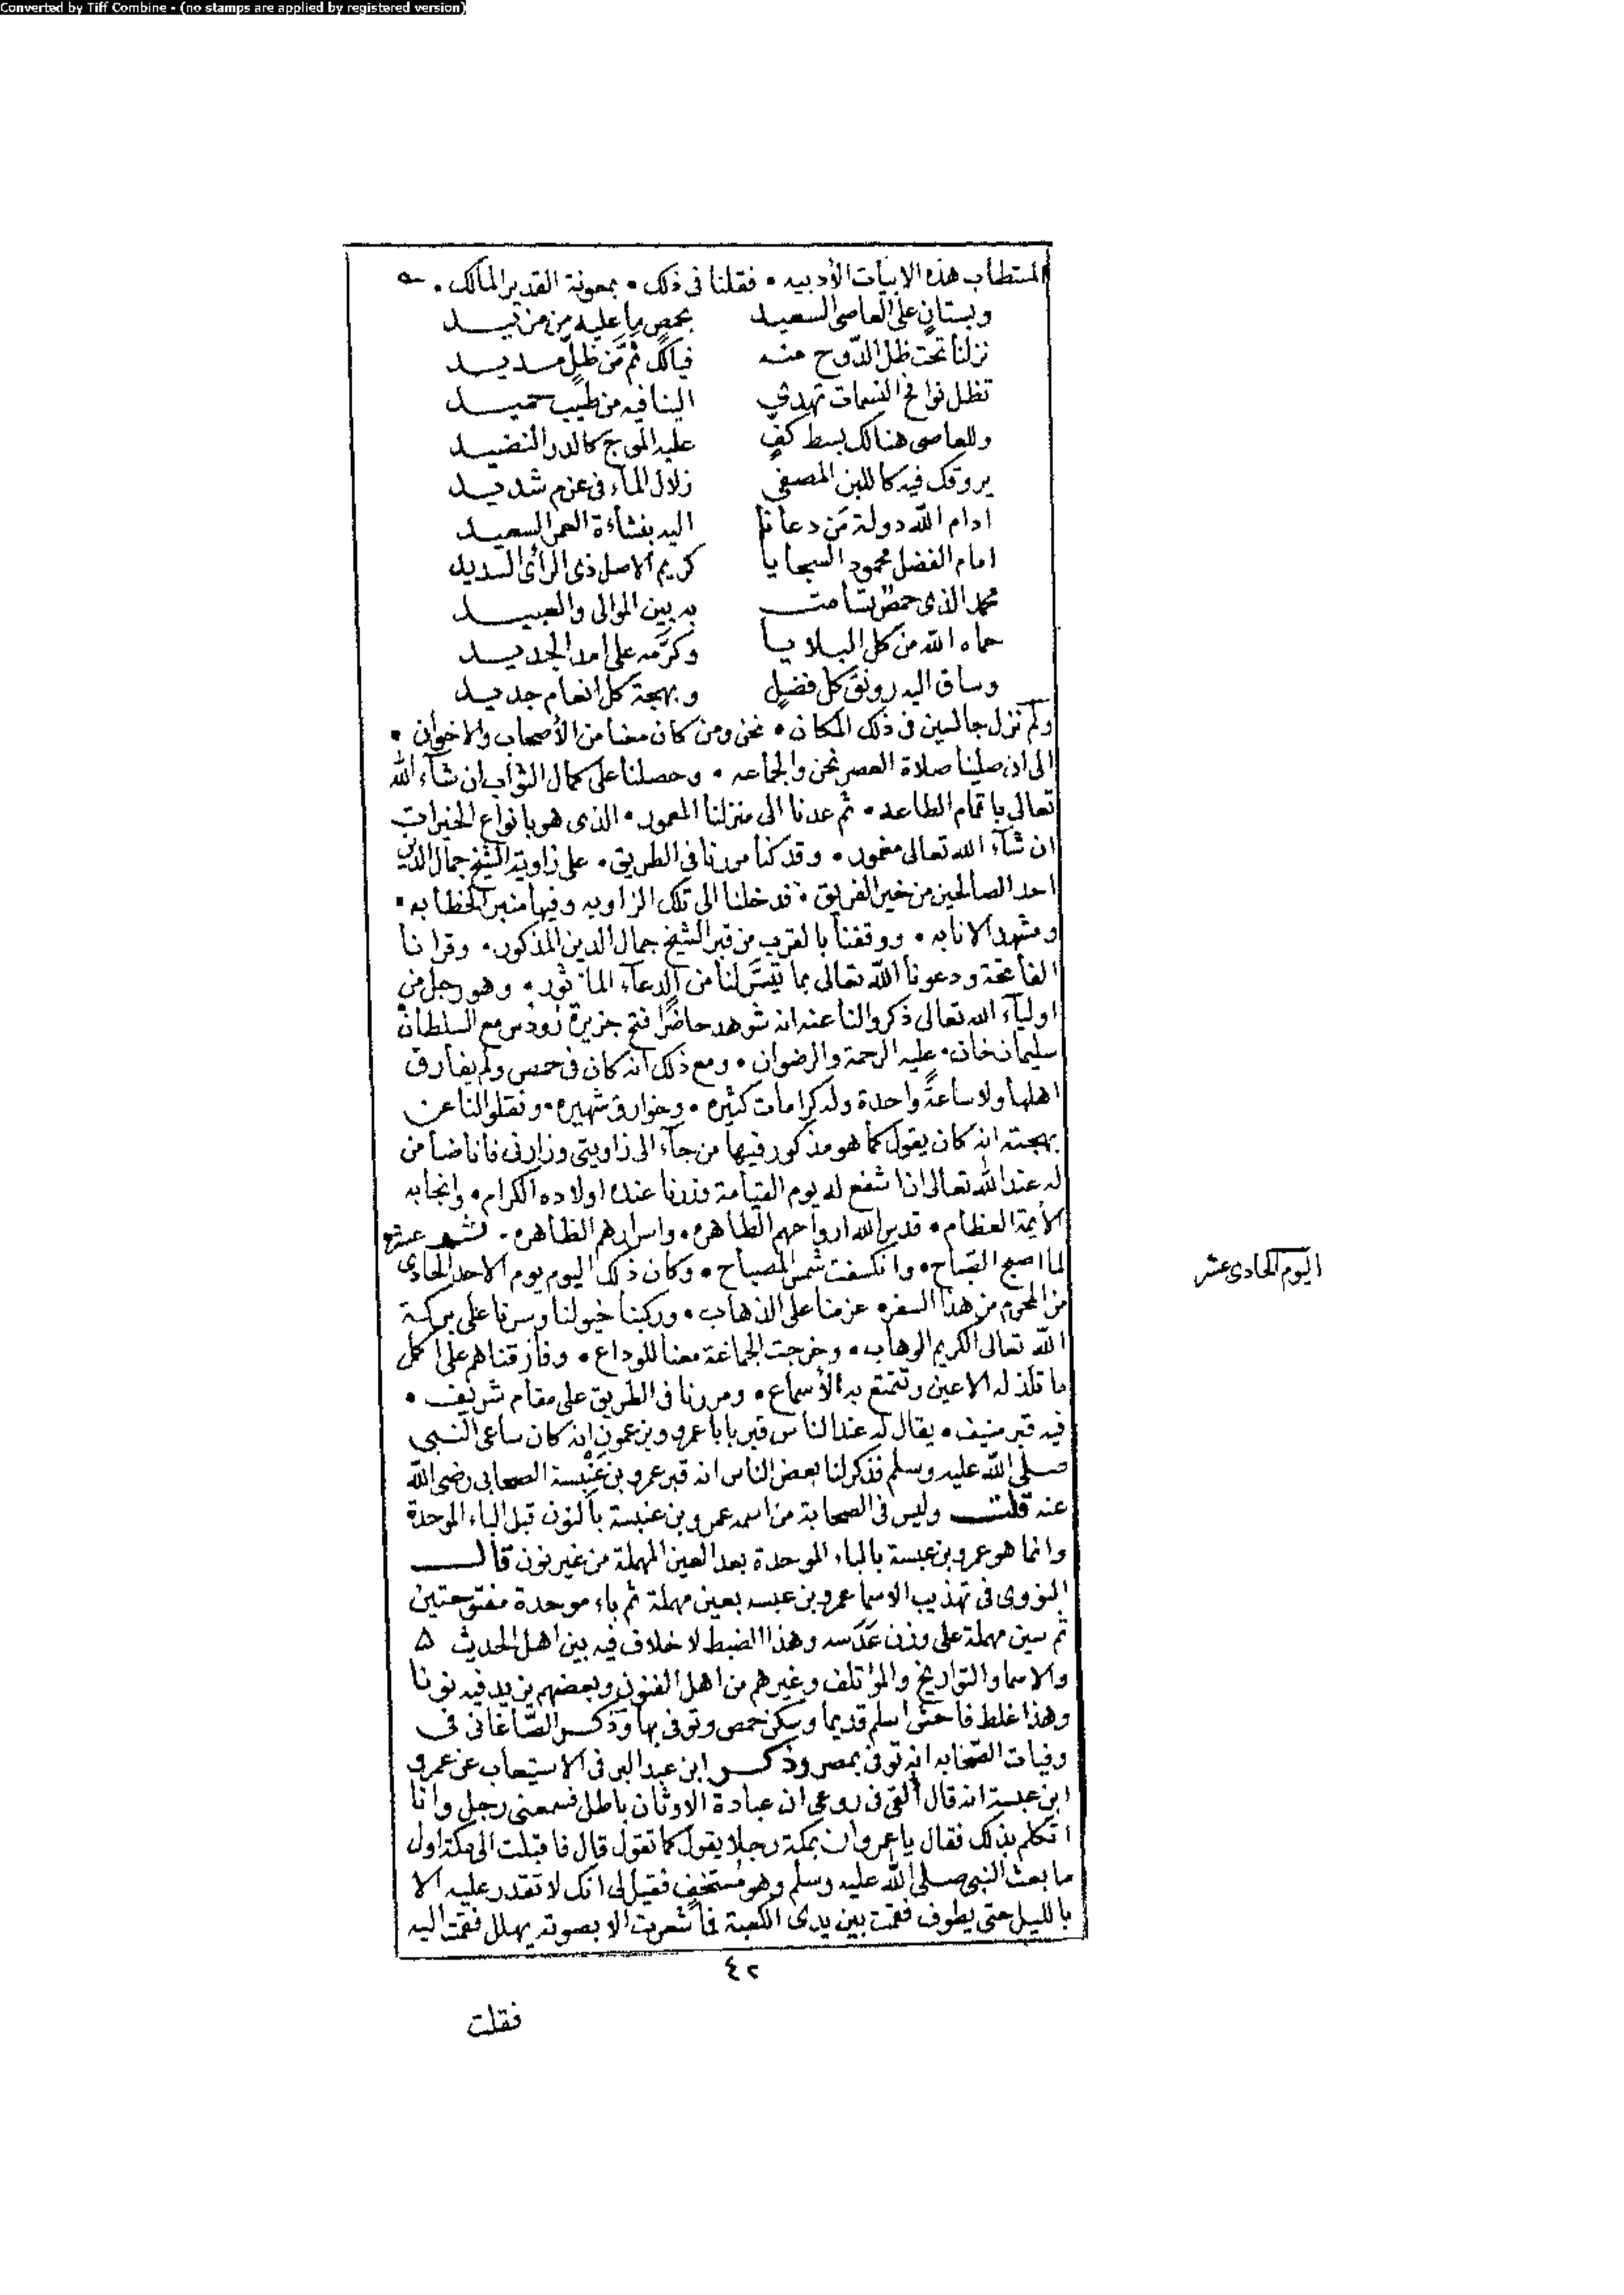 Converted by Tiff Combine - (no stamps are applied by registered version)
المستطاب هذه الابيات الأدبيه • فقلنا فى ذلك • بمعونة القدير المالك •
وبستان على العاصى السعيد بحمص ما عليه من مزيد
نزلنا تحت ظل الدّوح منه فيالك ثَمَّ من ظلٍّ مديد
تظل نوافح النسمات تهدي الينا فيه من طيب حميد
وللعاصى هنالك بسط كفٍ عليه الموج كالدر النضيد
يروقك فيه كاللبن المصفى زلال الماء فى عزم شديد
ادام الله دولة مَن دعانا اليه بنشاءة العمر السعيد
امام الفضل محمود السجايا كريم الاصل ذى الرأى السديد
محمد الذى حمصٌ تسامت به بين الموالى والعبيد
حماه الله من كل البلايا وكرَّمه على امد الجديد
وساق اليه رونق كل فضلٍ وبهجة كل انعام جديد
ولم نزل جالسين فى ذلك المكان • نحن ومن كان معنا من الأصحاب والاخوان •
الى ان صلينا صلاة العصر نحن والجماعه • وحصلنا على كمال الثواب ان شآء الله
تعالى باتمام الطاعه • ثم عدنا الى منزلنا المعمور • الذى هو بانواع الخيرات
ان شآء الله تعالى مغمور • وقد كنا مررنا فى الطريق • على زاوية الشيخ جمال الدين
احد الصالحين من خير الفريق • فدخلنا الى تلك الزاويه وفيها منبر الخطابه •
ومشهد الانابه • ووقفنا بالقرب من قبر الشيخ جمال الدين المذكور • وقرانا
الفاتحة ودعونا الله تعالى بما تيسَّر لنا من الدعآء الماثور • وهو رجل من
اوليآء الله تعالى ذكروا لنا عنه انه شوهد حاضرًا فتح جزيرة رودس مع السلطان
سليمان خان • عليه الرحمة والرضوان • ومع ذلك انه كان فى حمص ولم يفارق
اهلها ولا ساعةً واحدة وله كرامات كثيره • وخوارق شهيره • ونقلوا لنا عن
بهجته انه كان يقول كما هو مذكور فيها من جآء الى زاويتى وزارنى فانا ضامن
له عند الله تعالى انا اشفع له يوم القيامة وزرنا عنده اولاده الكرام • وانجابه
الأيمة العظام • قدس الله ارواحهم الطاهره • واسرارهم الظاهره •
لما اصبح الصَّباح • وانكسفت شمس المصباح • وكان ذلك اليوم يوم الاحد الحادى عشر
اليوم الحادى عشر
من المحرم من هذا السفر عزمنا على الذهاب • وركبنا خيولنا وسرنا على بركة
الله تعالى الكريم الوهاب • وخرجت الجماعة معنا للوداع • وفارقناهم على اكمل
ما تلذ له الاعين وتتمتع به الأسماع • ومررنا فى الطريق على مقام شريف •
فيه قبر منيف • يقال له عند الناس قبر بابا عمرو ويزعمون انه كان ساعى النبى
صلى الله عليه وسلم فذكر لنا بعض الناس انه قبر عمرو بن عَنْبسة الصحابى رضى الله
عنه قلت وليس فى الصحابة من اسمه عمرو بن عنبسة بالنون قبل الباء الموحدة
وانما هو عمرو بن عبسة بالباء الموحدة بعد العين المهملة من غير نون قال
النووى فى تهذيب الاسما عمرو بن عبسه بعين مهملة ثم باء موحدة مفتوحتين
ثم سين مهملة على وزن عَدَسه وهذا الضبط لا خلاف فيه بين اهل الحديث
والاسما والتواريخ والمؤتلف وغيرهم من اهل الفنون وبعضهم يزيد فيه نونا
وهذا غلط فاحش اسلم قديما وسكن حمص وتوفى بها وذكر الصَّاغانى فى
وفيات الصّحابه انه توفى بمصر وذكر ابن عبد البر فى الاستيعاب عن عمرو
ابن عبسة انه قال أُلقى فى روعى ان عبادة الاوثان باطل فسمعنى رجل وانا
اتكلم بذلك فقال يا عمرو ان بمكة رجلا يقول كما تقول قال فاقبلت الى مكة اول
ما بعث النبى صلى الله عليه وسلم وهو مُستخفٍ فقيل لى انك لا تقدر عليه الا
بالليل حتى يطوف فقمت بين يدى الكعبة فما شعرت الا بصوته يهلل فقمت اليه
٤٢
فقلت